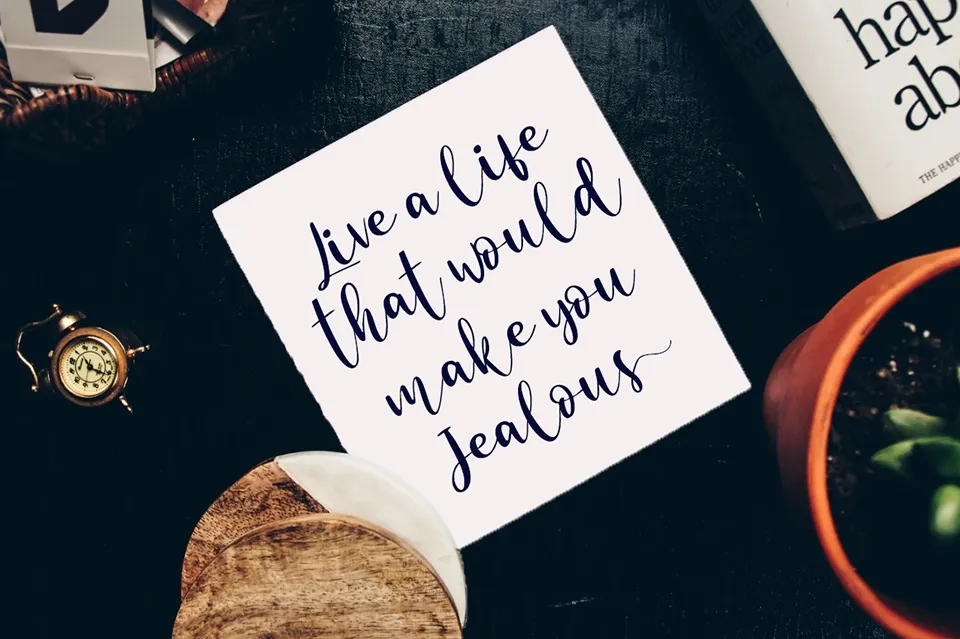 Live a life
that would
make you
Jealous
THE HAPP